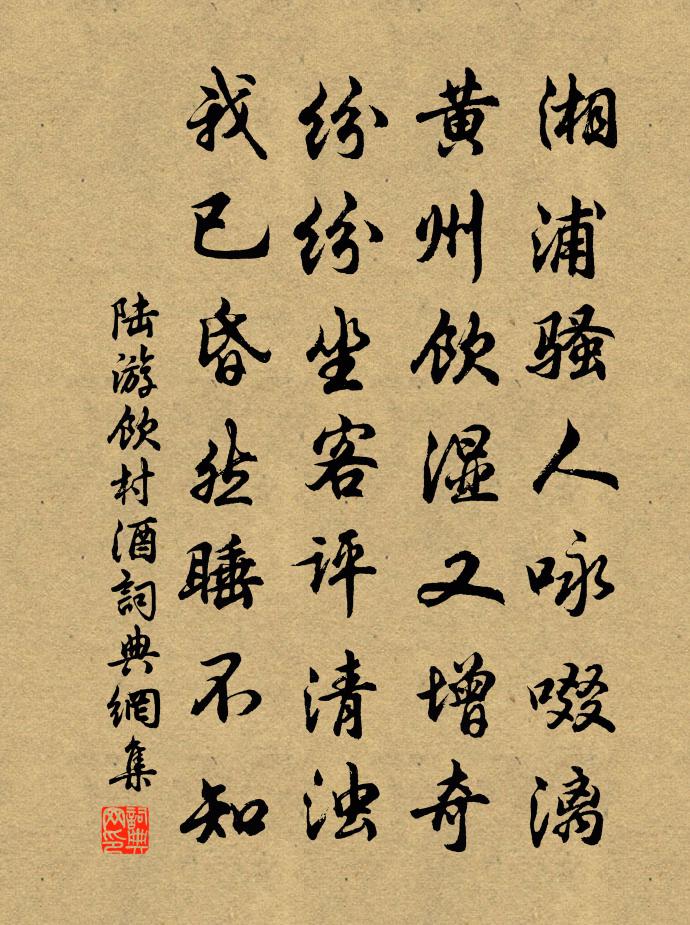 湘浦骚人咏啜漓
黄州饮湿又增奇
纷纷坐客评清浊
我已昏然睡不知
陆游饮村酒詞典網集
詞典網印